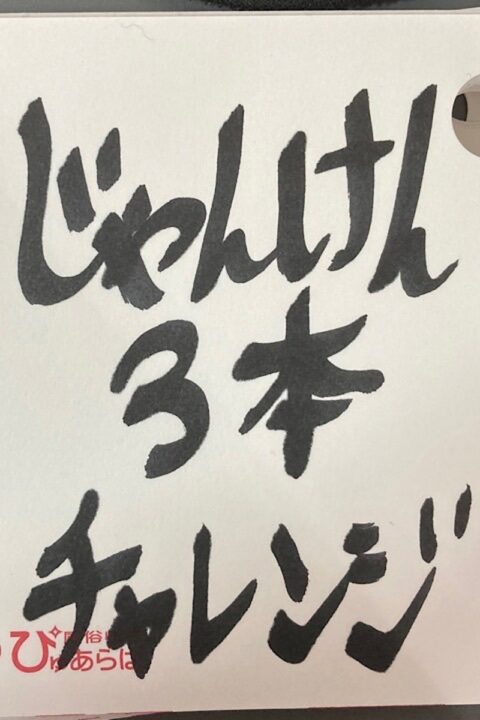 じゃんけん
3本
チャレンジ
ぴゅあらば